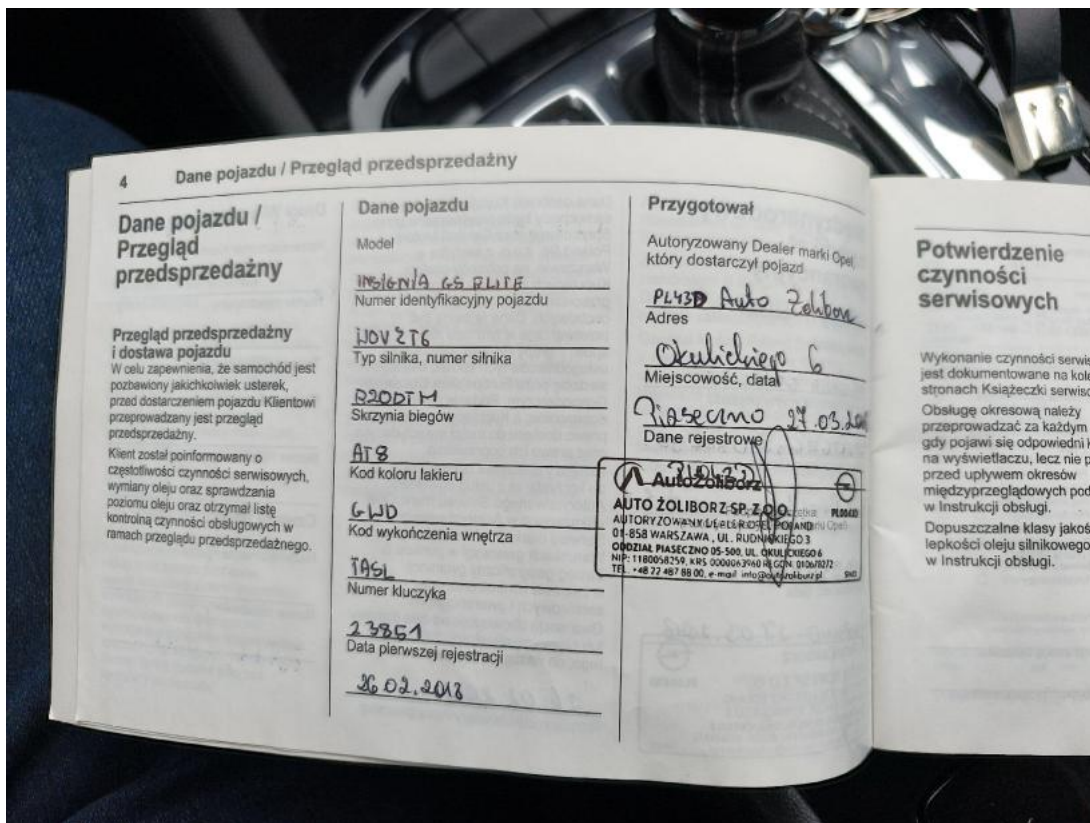 4 Dane pojazdu / Przegląd przedsprzedażny
Dane pojazdu /
Przegląd
przedsprzedażny
Przegląd przedsprzedażny
i dostawa pojazdu
W celu zapewnienia, że samochód jest
pozbawiony jakichkolwiek usterek,
przed dostarczeniem pojazdu Klientowi
przeprowadzany jest przegląd
przedsprzedażny.
Klient został poinformowany o
częstotliwości czynności serwisowych,
wymiany oleju oraz sprawdzania
poziomu oleju oraz otrzymał listę
kontrolną czynności obsługowych w
ramach przeglądu przedsprzedażnego.
Dane pojazdu
Model
INSIGNIA GS ELITE
Numer identyfikacyjny pojazdu
W0VZT6
Typ silnika, numer silnika
B20DTH
Skrzynia biegów
AT8
Kod koloru lakieru
GWD
Kod wykończenia wnętrza
TASL
Numer kluczyka
23851
Data pierwszej rejestracji
26.02.2018
Przygotował
Autoryzowany Dealer marki Opel,
który dostarczył pojazd
PL43D Auto Żoliborz
Adres
Okulickiego 6
Miejscowość, data
Piaseczno 27.03.
Dane rejestrowe
AutoŻoliborz
AUTO ŻOLIBORZ SP. Z O.O.
AUTORYZOWANY DEALER OPEL POLAND
01-858 WARSZAWA, UL. RUDNICKIEGO 3
ODDZIAŁ PIASECZNO 05-500, UL. OKULICKIEGO 6
NIP: 1180058259, KRS 0000063960 REGON:
TEL. +48 22 487 88 00, e-mail:
Potwierdzenie
czynności
serwisowych
Wykonanie czynności
jest dokumentowane na
stronach Książeczki
Obsługę okresową należy
przeprowadzać za każdym
gdy pojawi się odpowiedni
na wyświetlaczu, lecz nie
przed upływem okresów
międzyprzeglądowych
w Instrukcji obsługi.
Dopuszczalne klasy
lepkości oleju silnikowego
w Instrukcji obsługi.